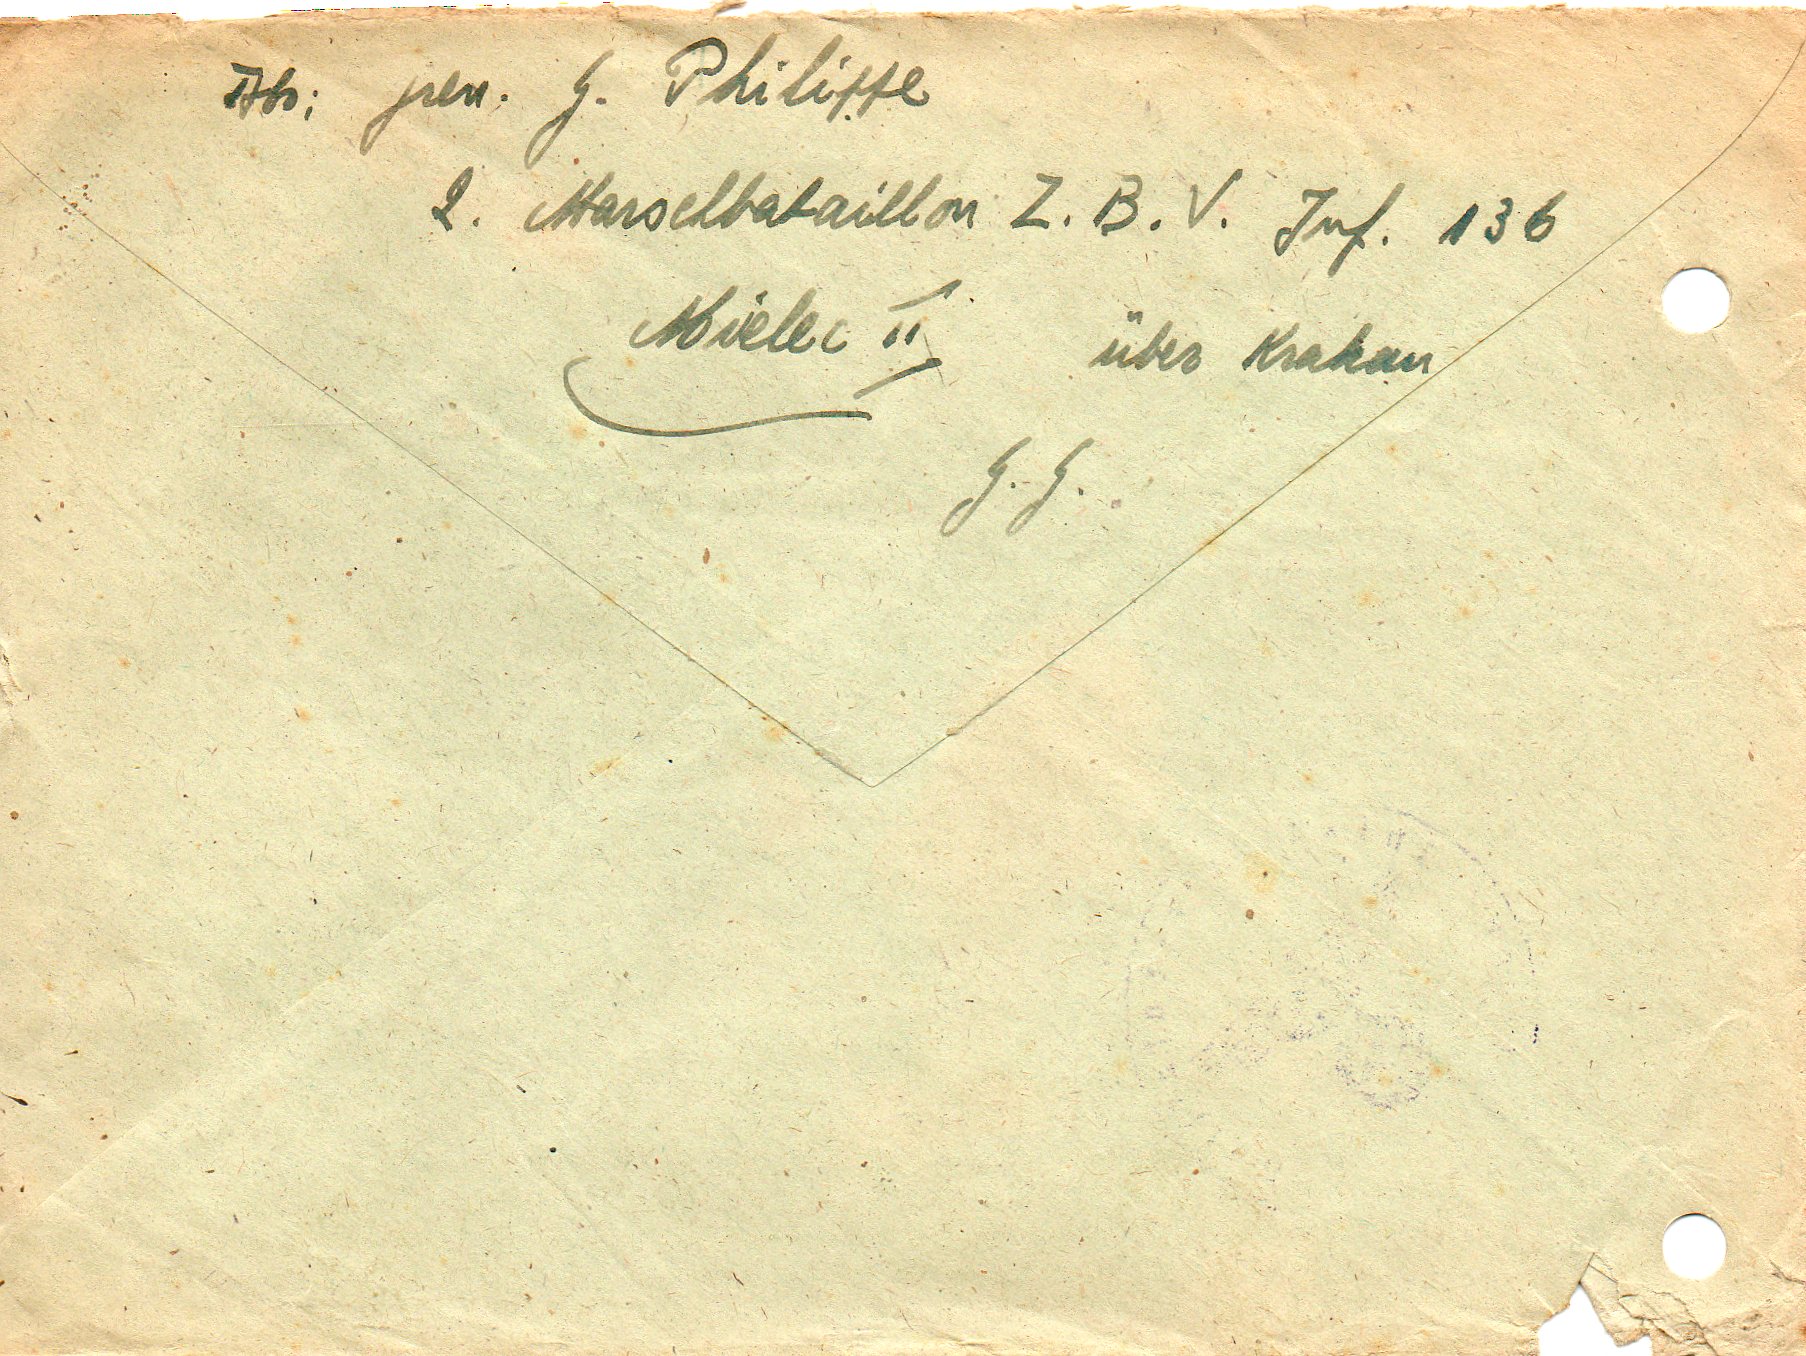 Ab: gren. G. Philippe
2. Marschbataillon Z. B. V. Inf. 136
Mielec II über Krakau
G. G.